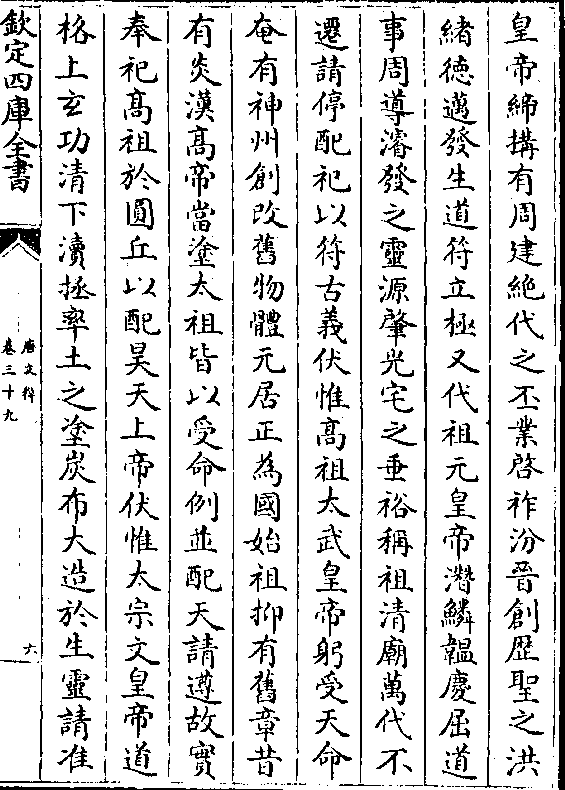 皇帝締搆有周建絶代之丕業啓祚汾晉創歴聖之洪
緒德邁發生道符立極又代祖元皇帝濳鱗韞慶屈道
事周導濬發之靈源肇光宅之垂裕稱祖清廟萬代不
遷請停配祀以符古義伏惟髙祖太武皇帝躬受天命
奄有神州創改舊物體元居正為國始祖抑有舊章昔
有炎漢髙帝當塗太祖皆以受命例並配天請遵故實
奉祀髙祖於圓丘以配昊天上帝伏惟太宗文皇帝道
格上玄功清下瀆拯率土之塗炭布大造於生靈請准
欽定四庫全書
唐文粹
卷三十九
六